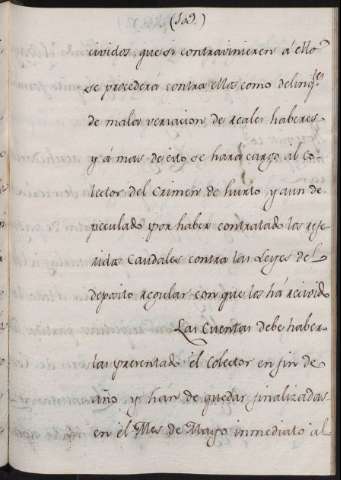 cividos, que si contravinieren á ello
se procederá contra ellos como delinq.tes
de mala versacion de reales haberes
y á mas de esto se hará cargo al Co
lector del Crimen de hurto, y aun de
peculado por haber contratado los refe
ridos Caudales contra las Leyes del
deposito regular con que los ha recivido
Las Cuentas debe haber-
las presentado el Colector en fin de
año y han de quedar finalizadas
en el Mes de Mayo inmediato al